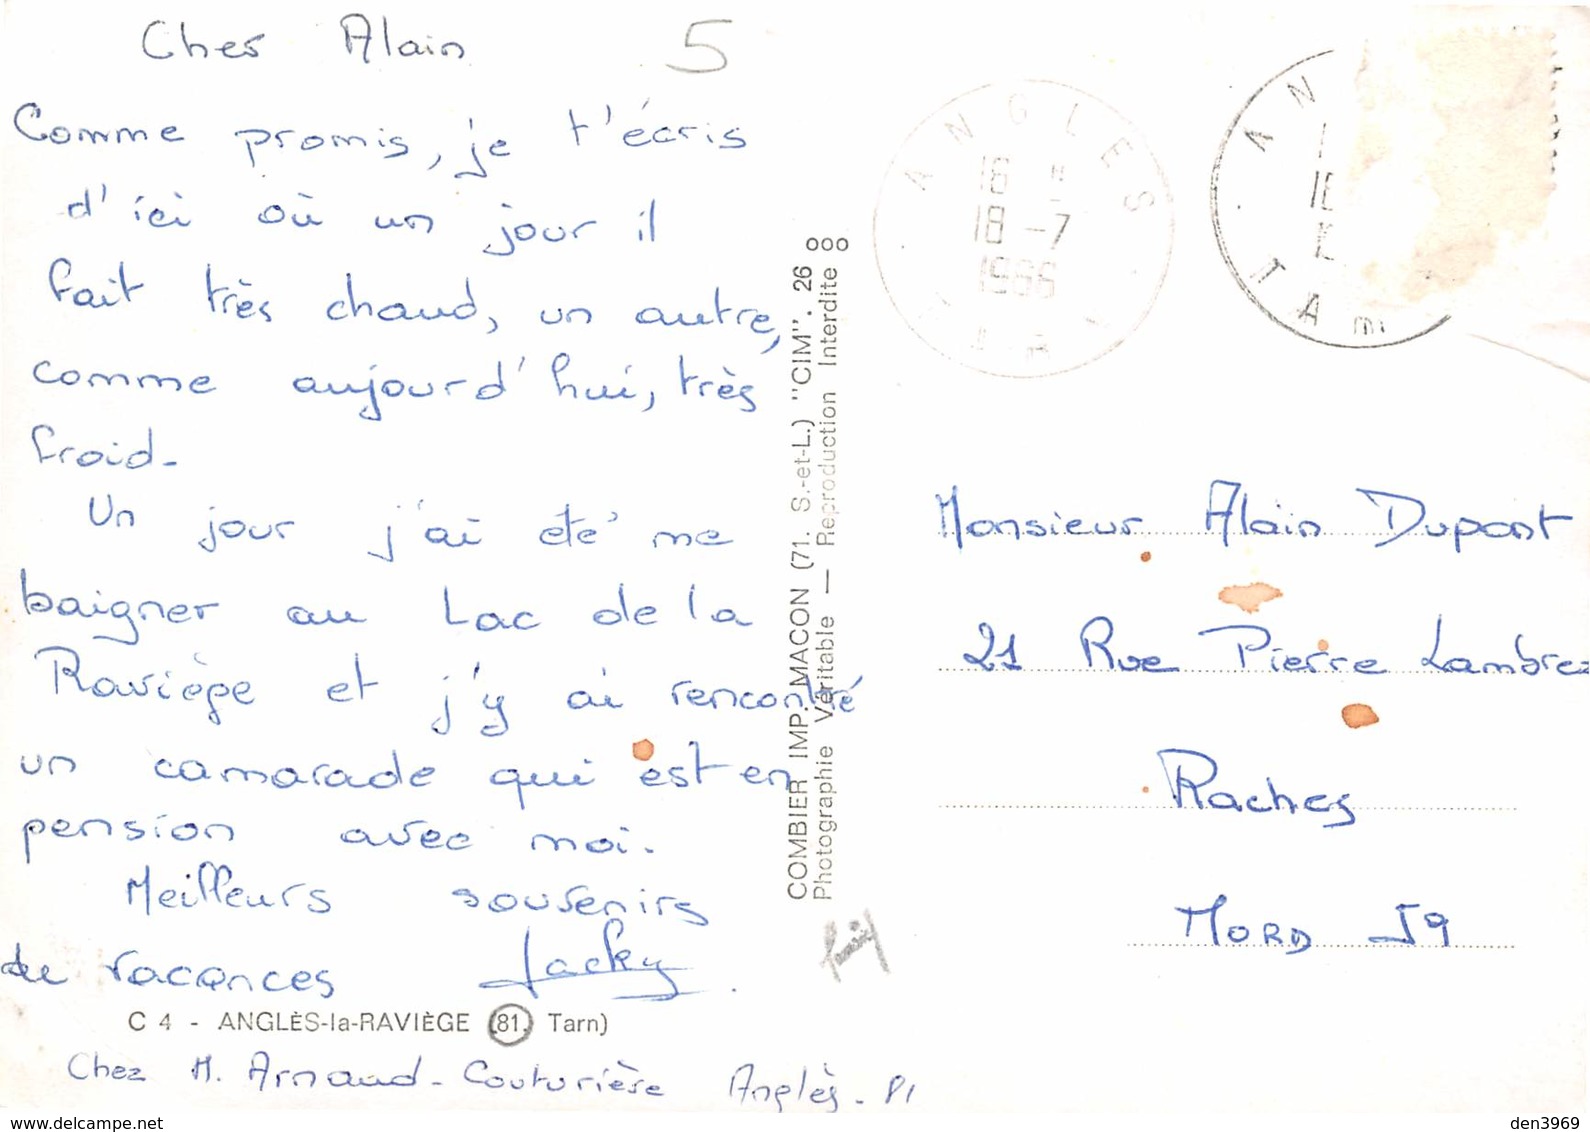 Cher Alain
5
Comme promis, je t'écris
d'ici où un jour il
fait très chaud, un autre,
comme aujourd'hui, très
froid.
Un jour j'ai été me
baigner au Lac de la
Raviège et j'y ai rencontré
un camarade qui est en
pension avec moi.
Meilleurs souvenirs
de vacances Jacky.
C 4 - ANGLÈS-la-RAVIÈGE (81. Tarn)
Chez M. Arnaud - Couturière Anglès - 81
COMBIER IMP. MACON (71. S.-et-L.) "CIM". 26
Photographie Véritable — Reproduction Interdite
ANGLES
16 H
18 -7
1966
AN
TA
Monsieur Alain Dupont
21 Rue Pierre Lambrez
Raches
NORD 59
den3969